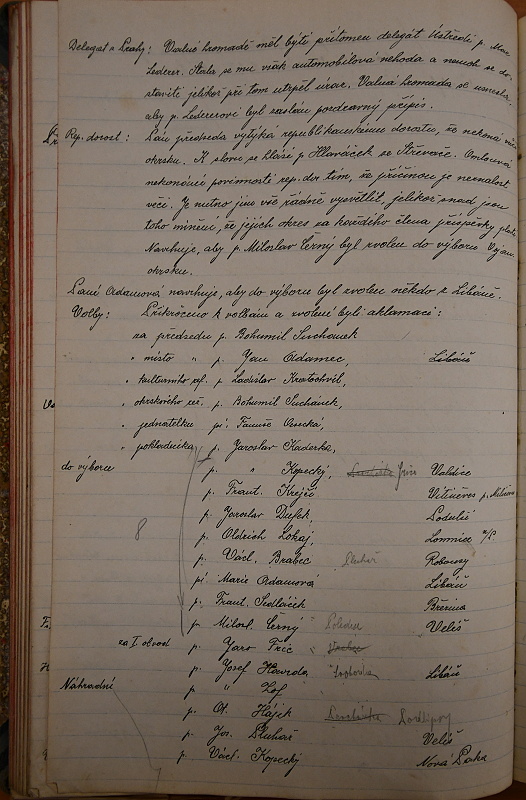 Delegat z Prahy: Valné hromadě měl býti přítomen delegát Ústředí p. Max
Lederer. Stala se mu však automobilová nehoda a nemoh se do-
staviti jelikož při tom utrpěl úraz. Valná hromada se usnesla
aby p. Ledererovi byl zaslán pozdravný přípis.
Rep. dorost: Pan předseda vytýká republikánskému dorostu, že nekoná
okrsku. K slovu se hlásí p. Hlaváček ze Střevače. Omlouvá
nekonání povinností rep. dor. tím, že příčinou je neznalost
věci. Je nutno jim vše řádně vysvětlit, jelikož snad jsou
toho mínění, že jejich okres za každého člena příspěvky platí
Navrhuje, aby p. Miloslav Černý byl zvolen do výboru
okrsku.
Paní Adamová navrhuje, aby do výboru byl zvolen někdo z Libáně.
Volby: Přikročeno k volbám a zvoleni byli aklamací:
za předsedu p. Bohumil Suchánek
" místo " p. Jan Adamec Libáň
" kulturního ref. p. Ladislav Kratochvíl,
" okrskového p. Bohumil Suchánek,
" jednatelku pí.
" pokladníka p. Jaroslav Kaderka,
do výboru p. " Kopecký, Jičín Valdice
p. Frant. Krejčí Vitiněves p.
p. Jaroslav Dufek,
8 p. Oldřich Lokaj, Lomnice n/P.
p. Václ. Brabec Robousy
pí. Marie Adamová Libáň
p. Frant. Sedláček Březina
p. Milosl. Černý Veliš
za I obvod p. Jaro Fric
p. Josef Havrda Libáň
Náhradní p. " Lof
p. Ot. Hájek
p. Jos. Sluhař Veliš
p. Václ. Kopecký Nová Paka